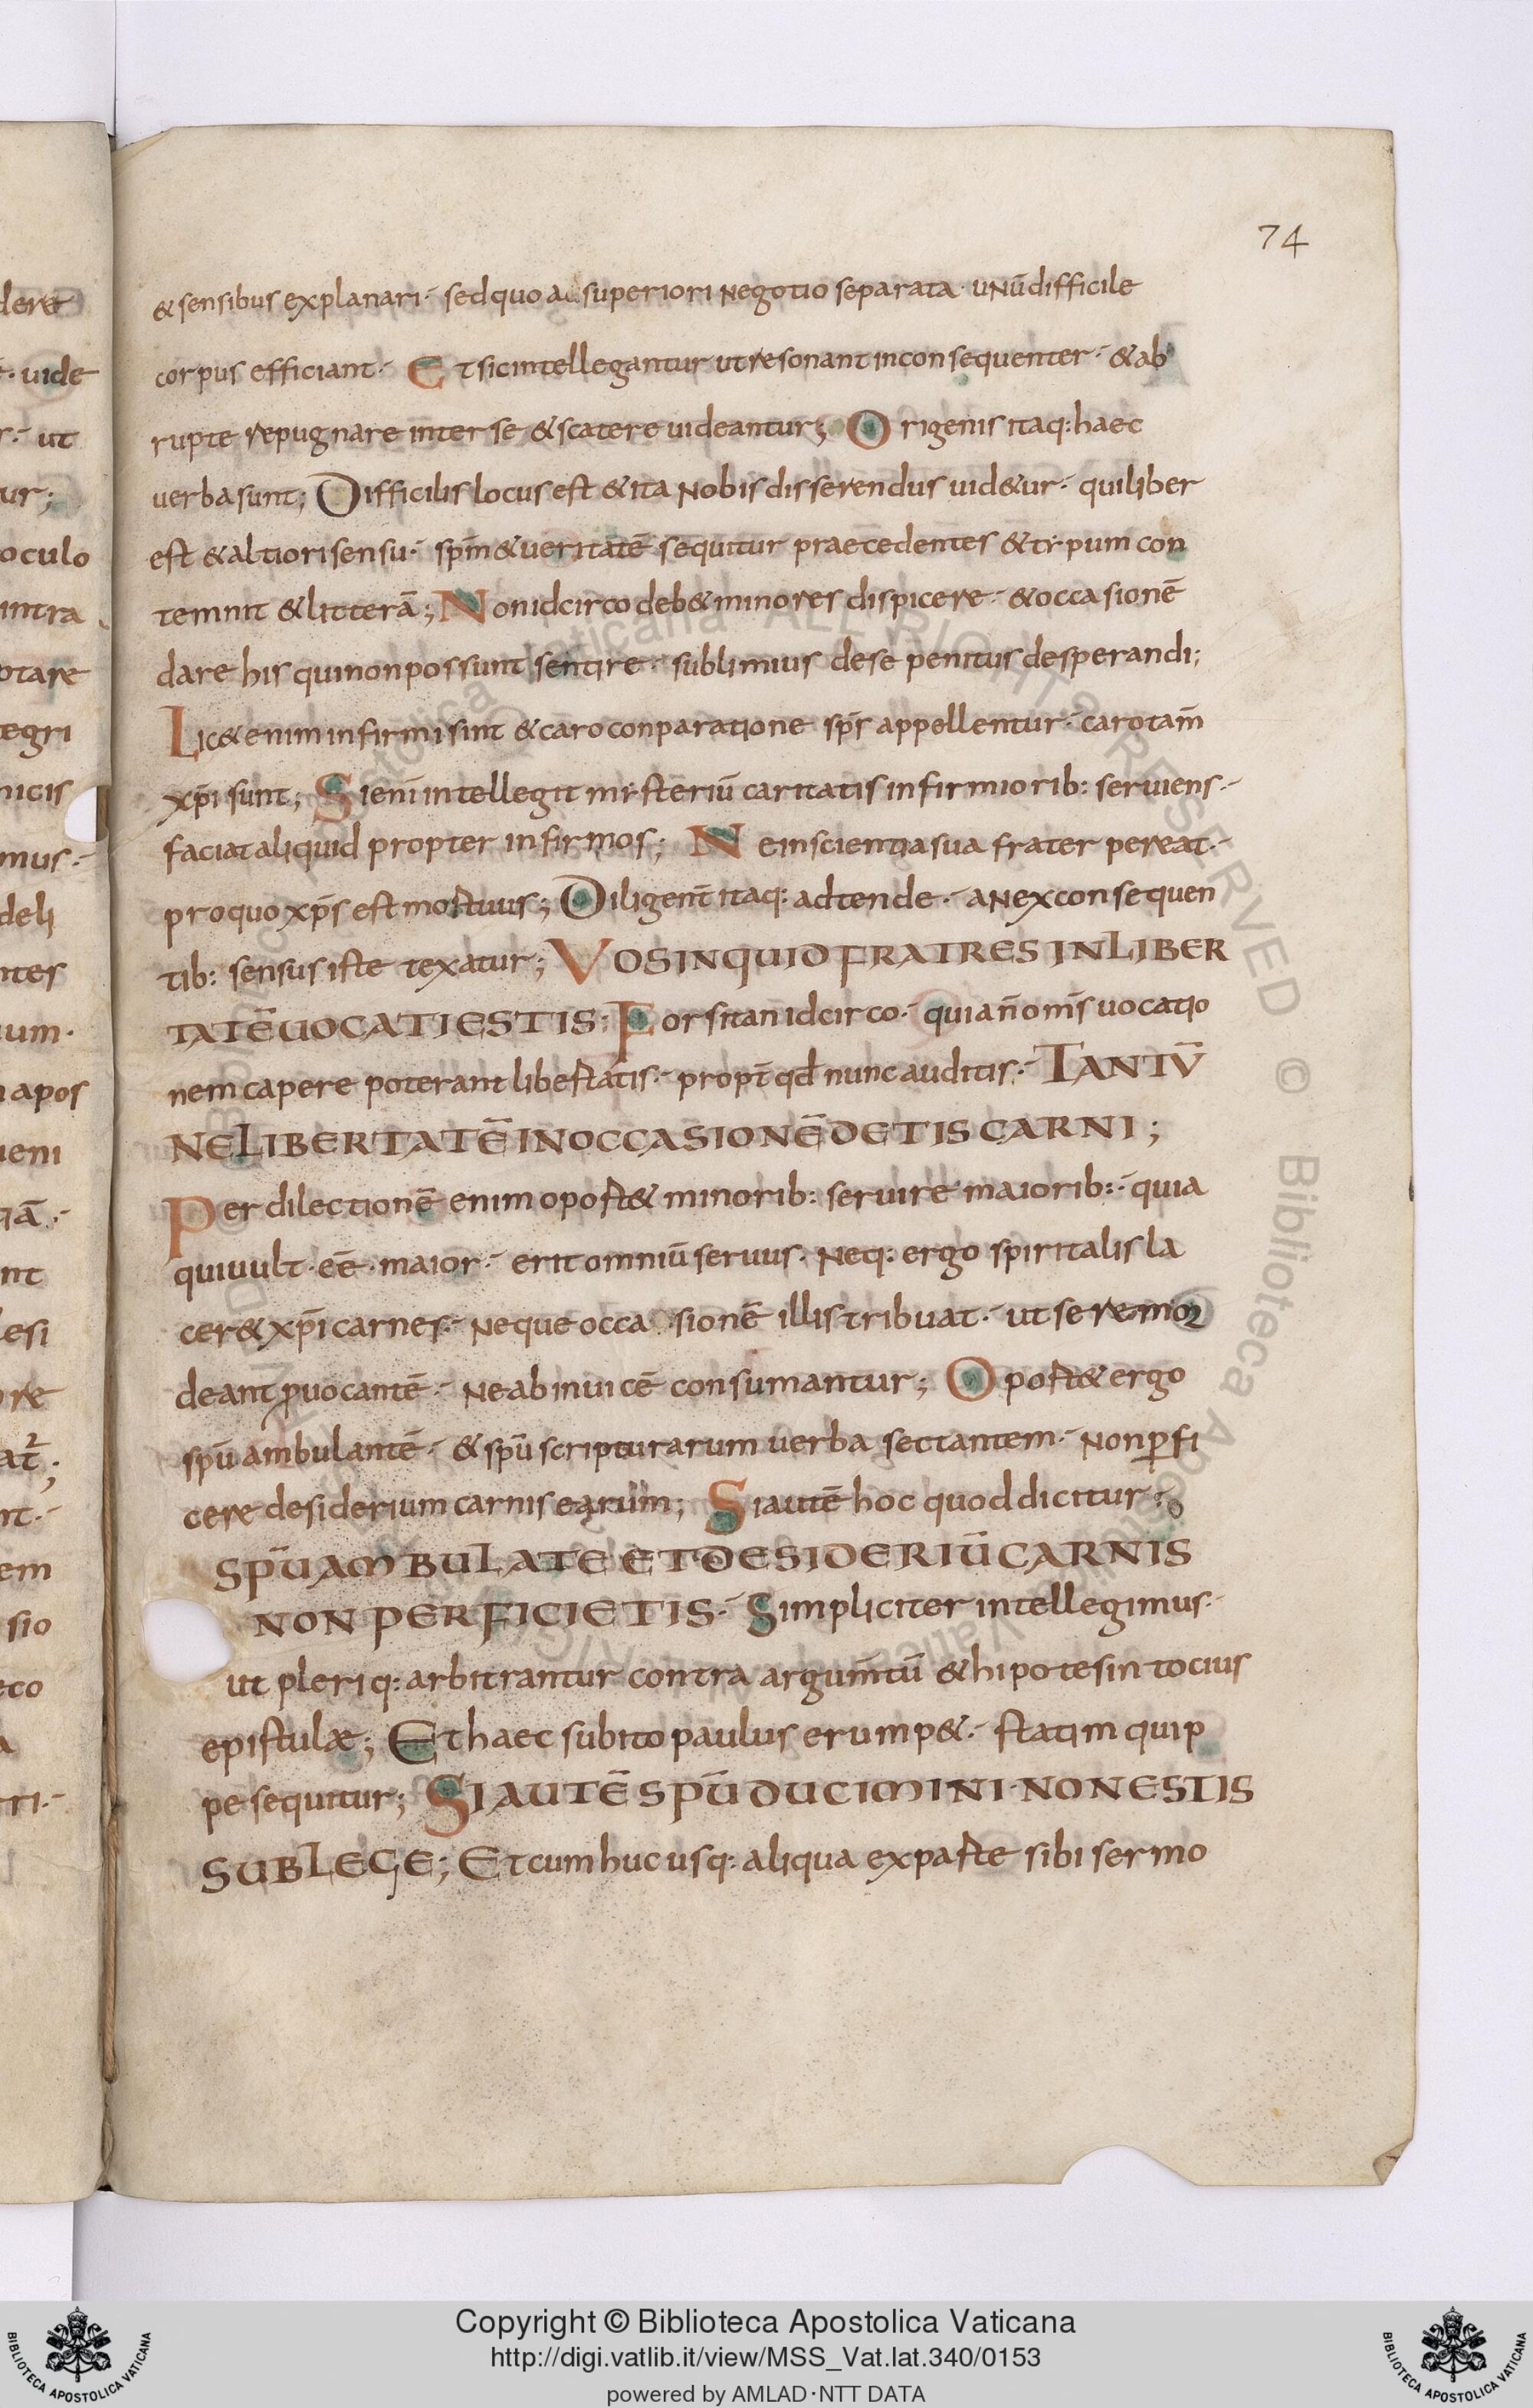 74
& sensibus explanari· sed quo a superiori negotio separata· unū difficile
corpus efficiant· Et sic intellegantur ut resonant inconsequenter· & ab
rupte repugnare inter se & scatere uideantur; Origenis itaq: haec
uerba sunt; Difficilis locus est & ita nobis disserendus uid&ur· qui liber
est & altiori sensu· spm̄ & ueritatē sequitur praecedentes & tẏpum con
temnit & litterā; Non idcirco deb& minores dispicere· & occasionē
dare his qui non possunt sentire· sublimius de se penitus desperandi;
Lic& enim infirmi sint & caro conparatione sps̄ appellentur· caro tam̄
xp̄i sunt; Si eni̅ intellegit mẏsteriū caritatis infirmiorib: seruiens·
faciat aliquid propter infirmos; Ne in scientia sua frater pereat·
pro quo xp̄s est mortuus; Diligent̄ itaq: adtende· an ex consequen
tib: sensus iste texatur; VOS INQUID FRATRES IN LIBER
TATĒ UOCATI ESTIS· Forsitan idcirco· quia n̄ oms̄ uocatio
nem capere poterant libertatis· propt̄ qd̄ nunc auditis· TANTŪ
NE LIBERTATĒ IN OCCASIONĒ DETIS CARNI;
Per dilectionē enim oport& minorib: seruire maiorib:· quia
qui uult· eē· maior· erit omniū seruus· Neq: ergo spiritalis la
cer& xp̄i carnes· Neque occa sionē illis tribuat· ut se remor
deant ꝓuocantē· Ne ab inuicē consumantur; Oport& ergo
spū ambulantē· & spū scripturarum uerba sectantem· Non ꝑfi
cere desiderium carnis earum; Si autē hoc quod dicitur·
SPŪ AMBULATE ET DESIDERIŪ CARNIS
NON PERFICIETIS· Simpliciter intellegimus·
ut pleriq: arbitrantur contra argum̄tū & hipotesin tocius
epistulæ; Et haec subito paulus erump&· statim quip
pe sequitur; SI AUTĒ SPŪ DUCIMINI· NON ESTIS
SUB LEGE; Et cum huc usq: aliqua ex parte sibi sermo
dere
· uide
ut
ur;
oculo
intra
ptare
egri
nicis
mus·
deli
ntes
um·
apos
ueni
nt
esi
ore
nt·
em
sio
BIBLIOTECA APOSTOLICA VATICANA
Copyright © Biblioteca Apostolica Vaticana
http://digi.vatlib.it/view/MSS_Vat.lat.340/0153
powered by AMLAD·NTT DATA
BIBLIOTECA APOSTOLICA VATICANA